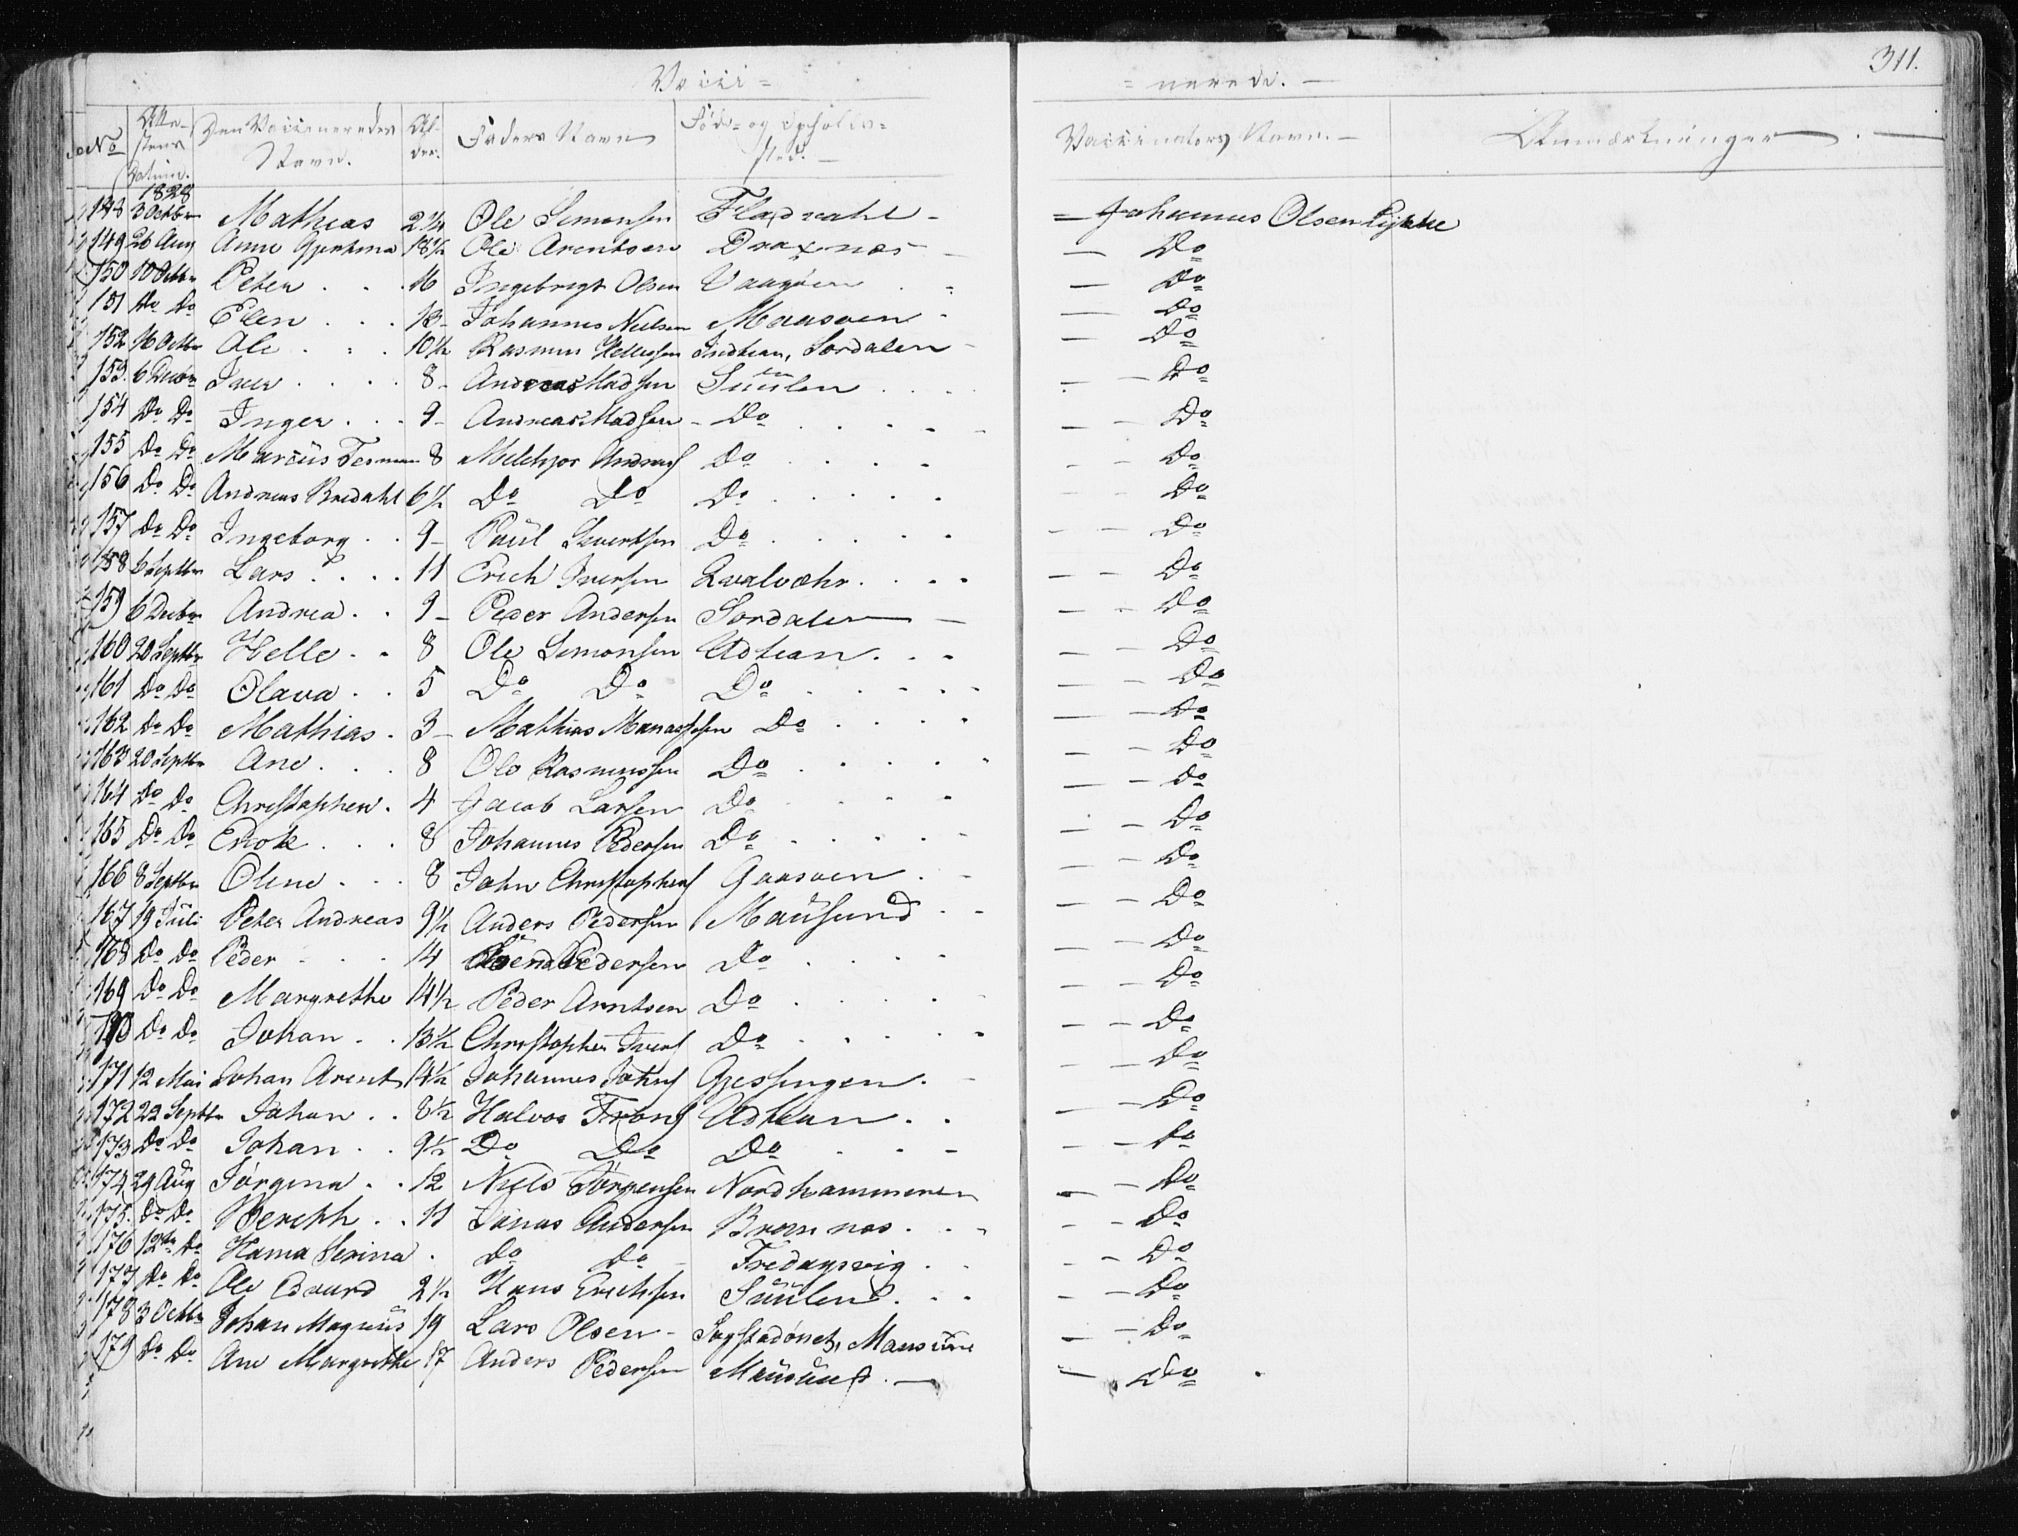 311.
Vacci = = nerede. —
No Atte-stens Datum. Den Vaccineredes Navn. Al-der. Faders Navn Føde- og Opholds-sted. — Vaccinators Navn. — Anmærkninger. —
1828
148 3 Octbr Mathias 2 1/4 Ole Simonsen — Johannes Olsen
149 26 Aug Anne 18 1/2 Ole Arentsen — Do
150 10 Octbr Peter . . . 16 Ingebrigt Olsen Vaagøen — Do
151 Do Do Elen . . . 13 - Johannes Nielsen Maasøen — Do
152 16 Octbr Ole . . . 10 1/2 Rasmus Sørdalen — Do
153. 6 Decbr Iver . . . . 8 - Andreas Madsen Suulen — Do
154 Do Do Inger . . . 9 - Andreas Madsen - Do — Do
155 Do Do Marcus 8 Melchior Do — Do
156 Do Do Andreas Bredahl 6 1/2 Do Do Do — Do
157 Do Do Ingeborg . . 9 - Paul Sivertsen Do — Do
158 6 Septbr Lars . . . . 11 Erich Iversen Qvalvæhr . . . — Do
159 6 Decbr Andrea . . 9 - Peder Andersen Sørdalen — Do
160 20 Septbr Helle . . 8 Ole Simonsen Udtian . . . — Do
161 Do Do Olava . . 5 Do Do Do — Do
162 Do Do Mathias . 3 - Mathias Manassesen Do — Do
163 20 Septbr Ane . . . 8 Ole Rasmussen Do — Do
164 Do Do Christopher . 4 Jacob Larsen Do — Do
165 Do Do Enok . . . 8 Johannes Pedersen Do — Do
166 8 Septbr Oline . . . 8 John Christophers Gaasøen — Do
167 19 Juli Peter Andreas 9 1/2 Anders Pedersen Mausund — Do
168 Do Do Peder 14 Pedersen Do — Do
169 Do Do Margrethe 14 1/2 Peder Arntsen Do — Do
170 Do Do Johan . . 13 1/2 Christopher Ivers Do — Do
171 12 Mai Johan Arent 14 1/2 Johannes Johns Gjessingen . — Do
172 22 Septbr Johan . . 8 1/2 Halvor Udtian . . — Do
173 Do Do Johan . . 9 1/2 Do Do Do — Do
174 29 Aug Jørgina . . 12 Niels Jørgensen Nordhammeren — Do
175. Do Do Berethe . . 11 Jonas Andersen . . — Do
176 12te Do Hanna Serina . Do Do Fredagsvig . . — Do
177 Do Do Ole Edvard 2 1/2 Hans Erichsen Suulen . . . — Do
178 3 Octbr Johan Magnus 19 Lars Olsen - — Do
179 Do Do Ane Margrethe 17 Anders Pedersen Mausund . — — Do